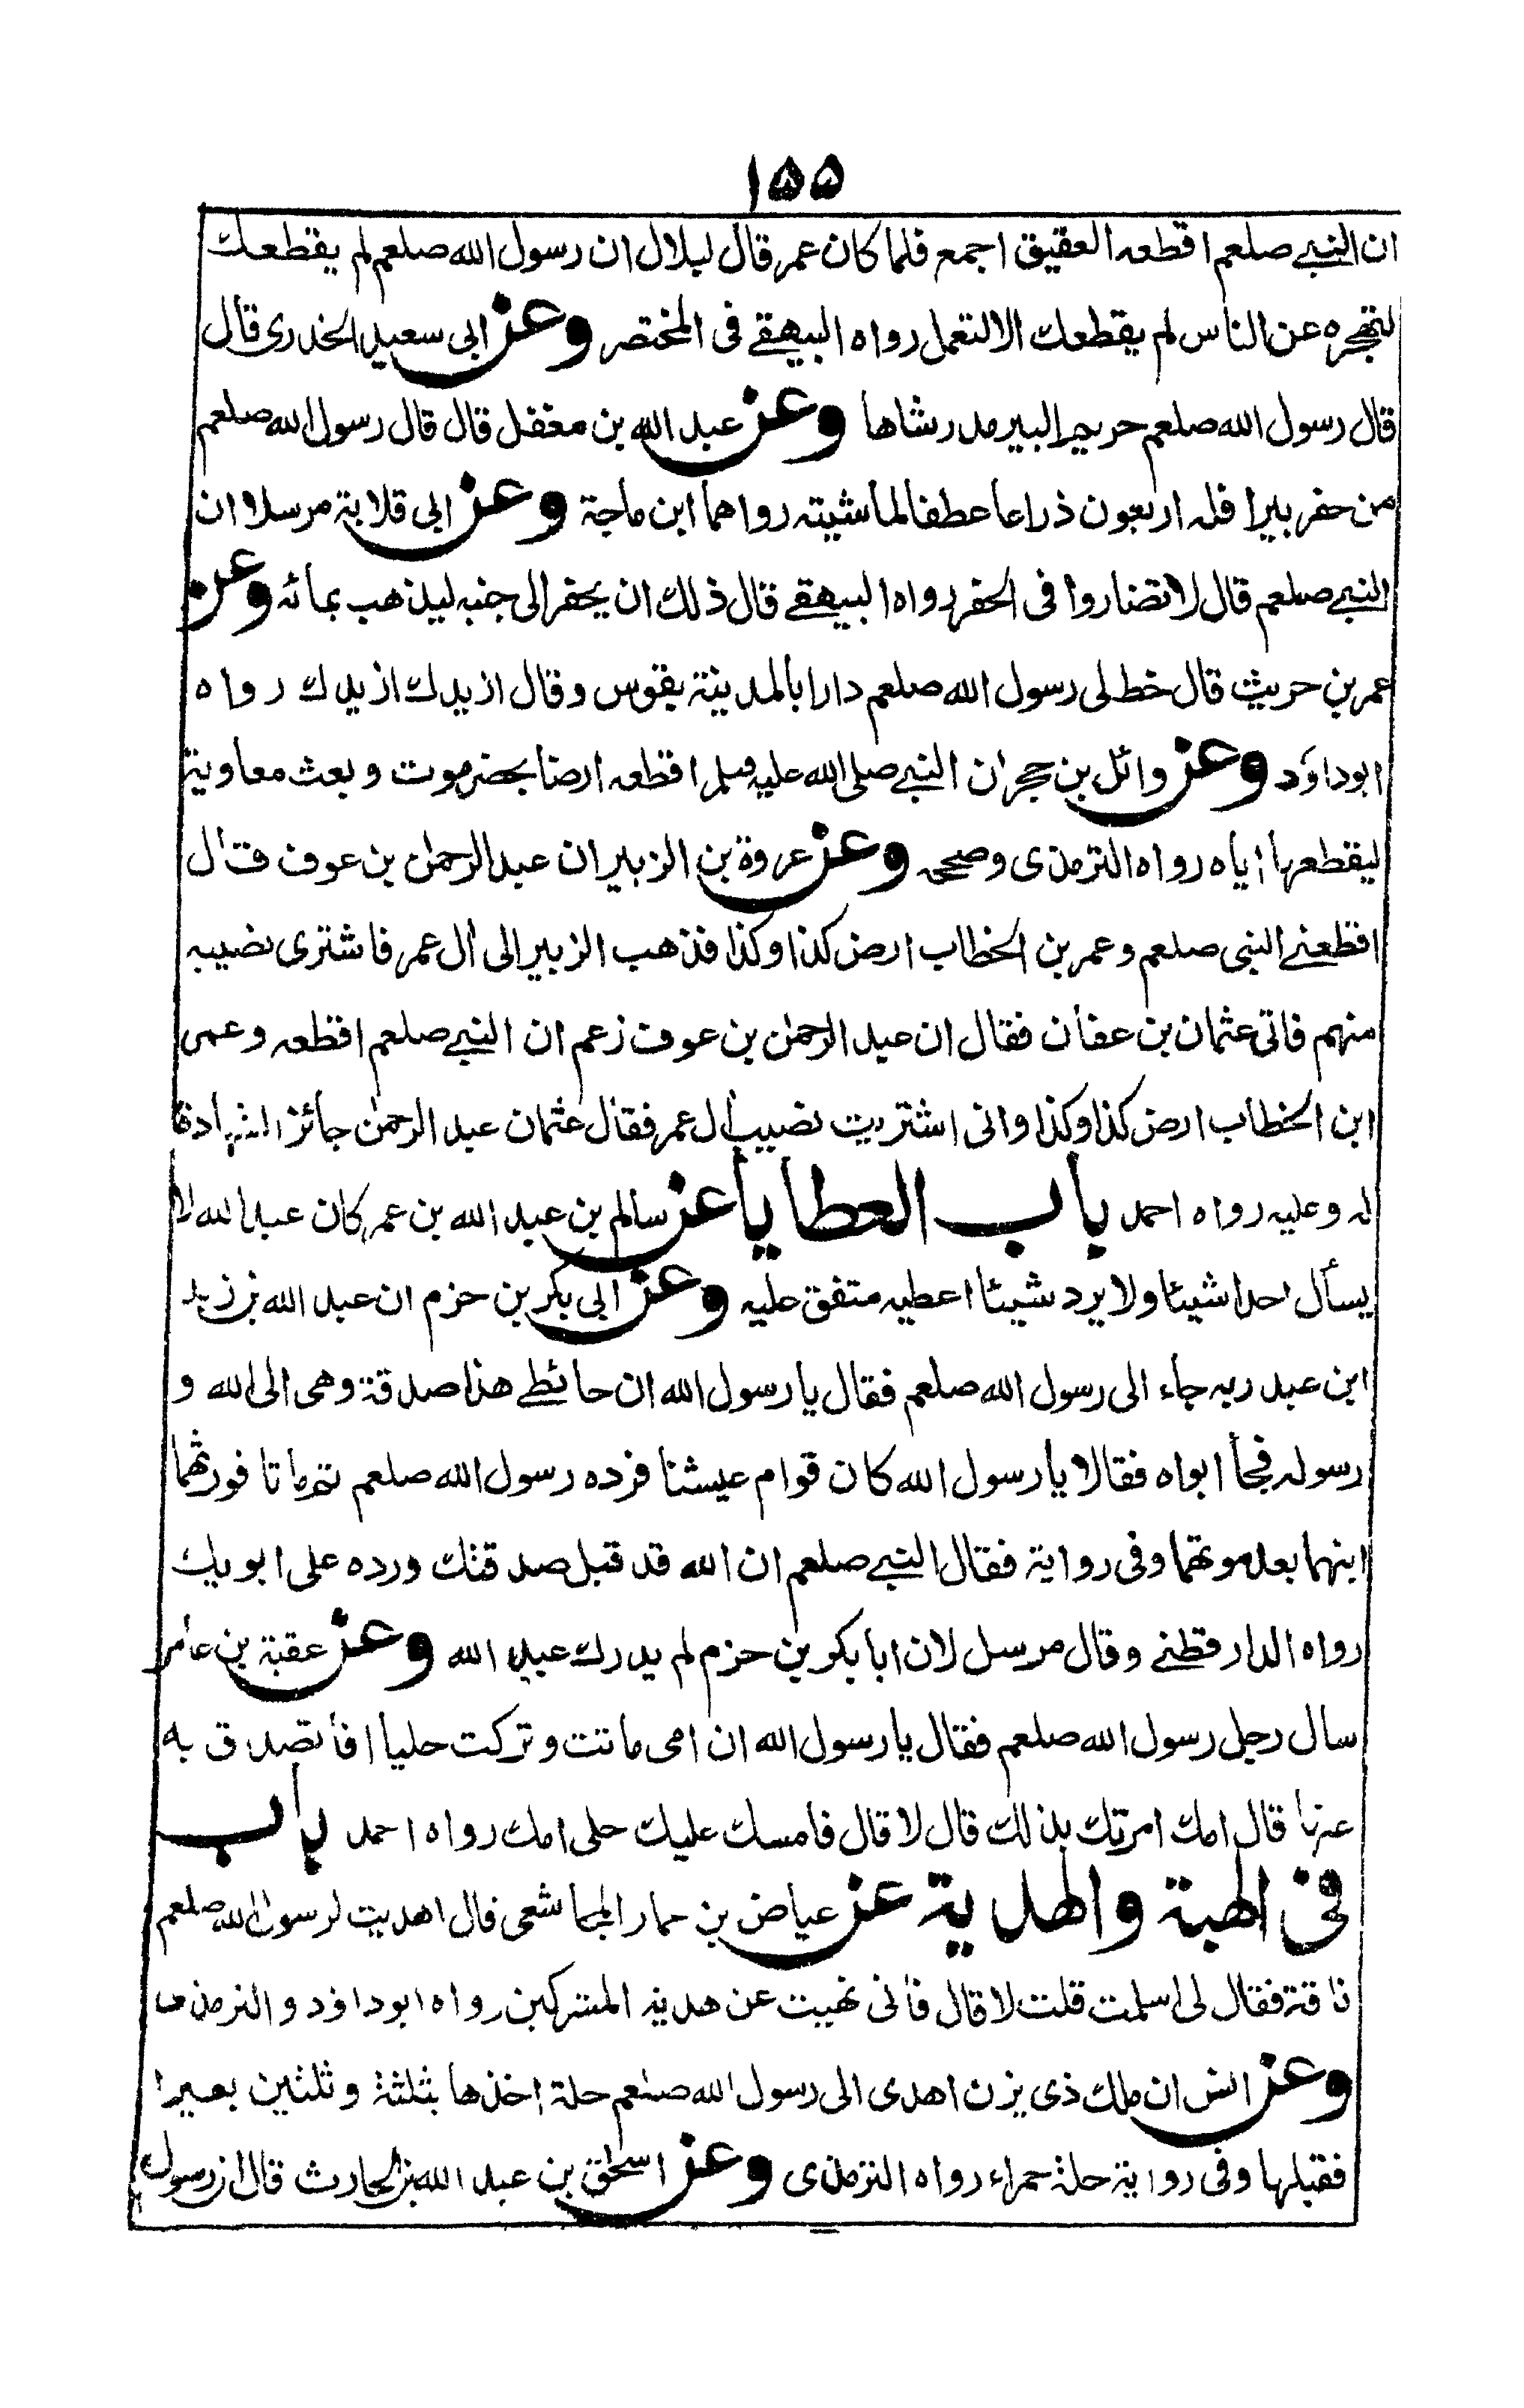 ١٥٥
ان النبي صلعم اقطعه العقيق اجمع فلما كان عمر قال لبلال ان رسول الله صلعم لم يقطعك
لتحجره عن الناس لم يقطعك الا لتعمل رواه البيهقي فى المختصر وعن ابى سعيد الخدرى قال
قال رسول الله صلعم حريم البير مد رشاها وعن عبد الله بن مغفل قال قال رسول الله صلعم
من حفر بيرا فله اربعون ذراعا عطفا لماشيته رواهما ابن ماجة وعن ابى قلابة مرسلا ان
النبي صلعم قال لا تضاروا فى الحفر رواه البيهقي قال ذلك ان يحفر الى جنبه ليذهب بمائه وعن
عمر بن حريث قال خط لى رسول الله صلعم دارا بالمدينة بقوس وقال ازيدك ازيدك رواه
ابوداؤد وعن وائل بن حجر ان النبي صلى الله عليه وسلم اقطعه ارضا بحضرموت وبعث معاوية
ليقطعها اياه رواه الترمذى وصححه وعن عروة بن الزبير ان عبد الرحمن بن عوف قال
اقطعنے النبى صلعم وعمر بن الخطاب ارض كذا وكذا فذهب الزبير الى ال عمر فاشترى نصيبه
منهم فاتى عثمان بن عفان فقال ان عبد الرحمن بن عوف زعم ان النبي صلعم اقطعه وعمر
ابن الخطاب ارض كذا وكذا وانى اشتريت نصيب ال عمر فقال عثمان عبد الرحمن جائز الشهادة
له وعليه رواه احمد باب العطايا عن سالم بن عبد الله بن عمر كان عبد الله لا
يسأل احدا شيئا ولا يرد شيئا اعطيه متفق عليه وعن ابى بكر بن حزم ان عبد الله بن زيد
ابن عبد ربه جاء الى رسول الله صلعم فقال يا رسول الله ان حائطے هذا صدقة وهى الى الله و
رسوله فجا ابواه فقالا يا رسول الله كان قوام عيشنا فرده رسول الله صلعم ثم ماتا فورثهما
ابنهما بعد موتهما وفى رواية فقال النبي صلعم ان الله قد قبل صدقتك ورده على ابويك
رواه الدارقطنے وقال مرسل لان ابا بكر بن حزم لم يدرك عبد الله وعن عقبة بن عامر
سال رجل رسول الله صلعم فقال يا رسول الله ان امى ماتت وتركت حليا افاتصدق به
عنها قال امك امرتك بذلك قال لا قال فامسك عليك حلى امك رواه احمد باب
فى الهبة والهدية عن عياض بن حمار المجاشعى قال اهديت لرسول الله صلعم
ناقة فقال لى اسلمت قلت لا قال فانى نهيت عن هدية المشركين رواه ابوداؤد والترمذى
وعن انس ان ملك ذى يزن اهدى الى رسول الله صلعم حلة اخذها بثلثة وثلثين بعيرا
فقبلها وفى رواية حلة حمراء رواه الترمذى وعن اسحق بن عبد الله بن الحارث قال ان رسول